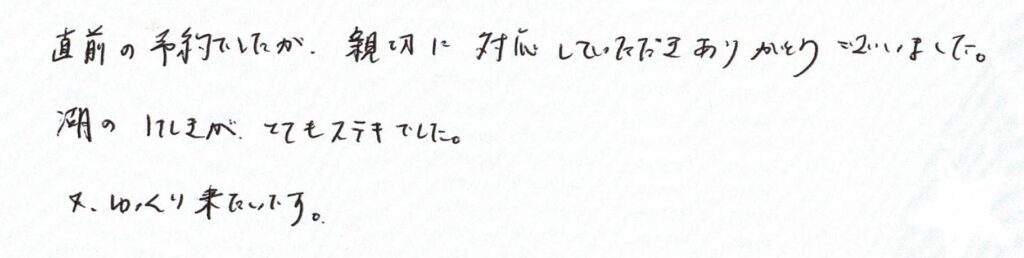 直前の予約でしたが、親切に対応していただきありがとうございました。
湖のけしきが、とてもステキでした。
又、ゆっくり来たいです。